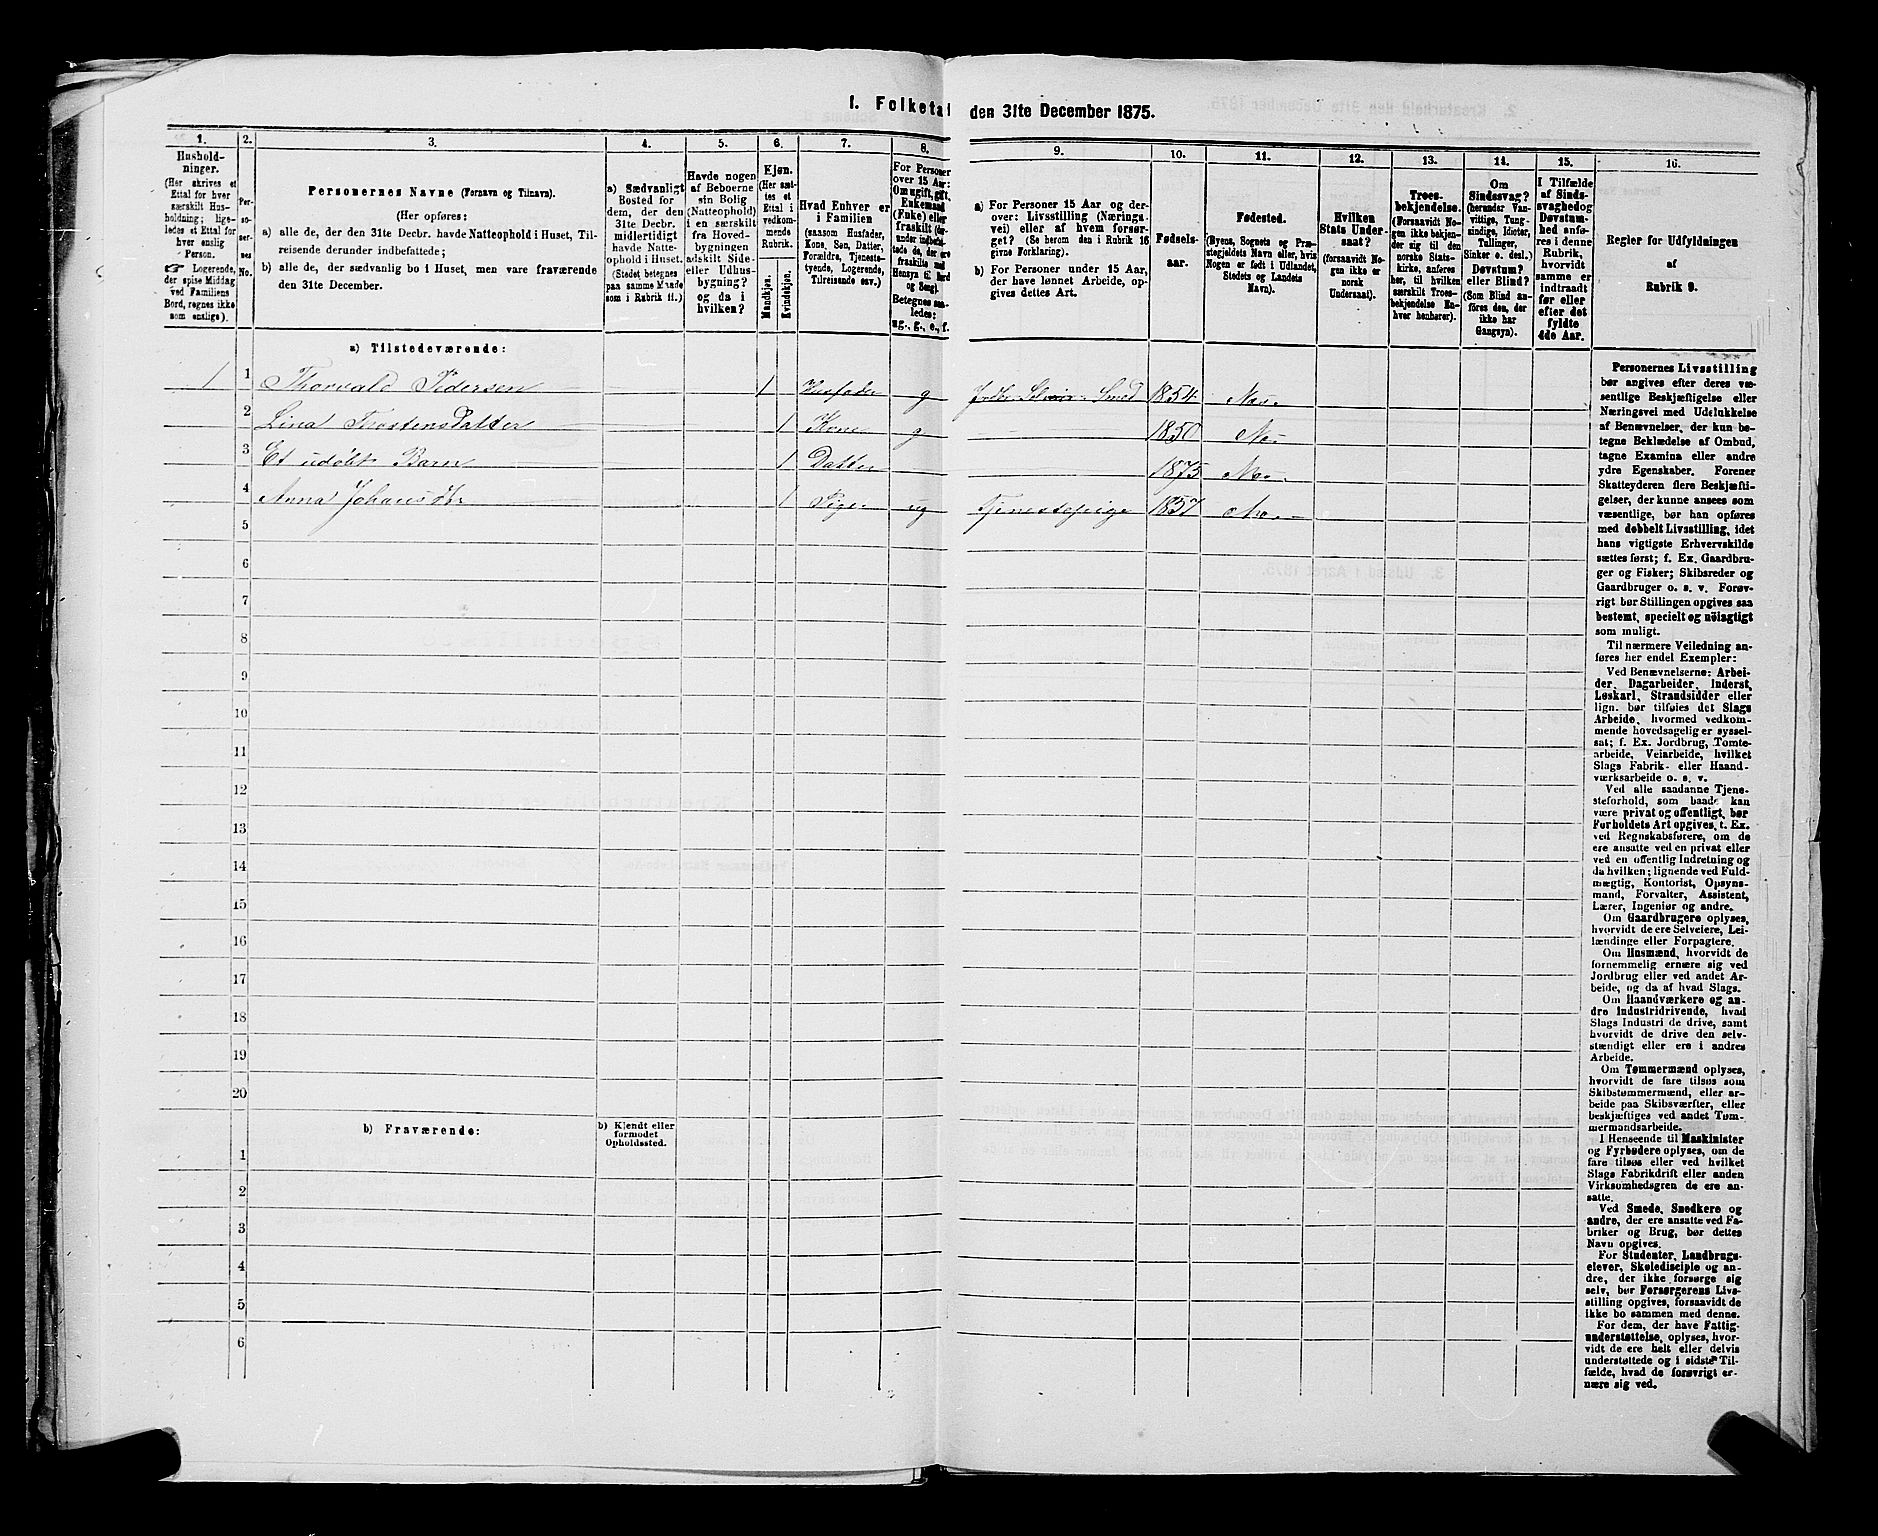 1. Folketal
den 31te December 1875.
1.
Hushold-
ninger.
(Her skrives et
Ettal for hver
særskilt Hus-
holdning; lige-
ledes et Ettal for
hver enslig
Person.
☛ Logerende,
der spise Middag
ved Familiens
Bord, regnes ikke
som enslige).
2.
Per-
so-
ner-
nes
No.
3.
Personernes Navne (Fornavn og Tilnavn).
(Her opføres:
a) alle de, der den 31te Decbr. havde Natteophold i Huset, Til-
reisende derunder indbefattede;
b) alle de, der sædvanlig bo i Huset, men vare fraværende
den 31te December.
4.
a) Sædvanligt
Bosted for
dem, der den
31te Decbr.
midlertidigt
havde Natte-
ophold i Huset.
(Stedet betegnes
paa samme Maade
som i Rubrik 11.)
5.
Havde nogen
af Beboerne
sin Bolig
(Natteophold)
i en særskilt
fra Hoved-
bygningen
adskilt Side-
eller Udhus-
bygning?
og da i
hvilken?
6.
Kjøn.
(Her sæt-
tes et
Ettal i
vedkom-
mende
Rubrik.
Mandkjøn.
Kvindekjøn.
7.
Hvad Enhver er
i Familien
(saasom Husfader,
Kone, Søn, Datter,
Forældre, Tjeneste-
tyende, Logerende,
Tilreisende osv.)
8.
For Personer
over 15 Aar:
Om ugift, gift,
Enkemand
(Enke) eller
fraskilt (der-
under indbefat-
tede de, der ere
fraskilte med
Hensyn til Bord
og Seng).
Betegnes saa-
ledes:
ug., g., e., f.
9.
a) For Personer 15 Aar og der-
over: Livsstilling (Nærings-
vei) eller af hvem forsør-
get? (Se herom den i Rubrik 16
givne Forklaring).
b) For Personer under 15 Aar,
der have lønnet Arbeide, op-
gives dettes Art.
10.
Fødsels-
aar.
11.
Fødested.
(Byens, Sognets og Præ-
stegjeldets Navn eller, hvis
Nogen er født i Udlandet,
Stedets og Landets
Navn).
12.
Hvilken
Stats Under-
saat?
(forsaavidt No-
gen ikke er
norsk
Undersaat).
13.
Troes-
bekjendelse.
(Forsaavidt No-
gen ikke bekjen-
der sig til den
norske Stats-
kirke, anføres
her, til hvilken
særskilt Troes-
bekjendelse En-
hver henhører).
14.
Om
Sindssvag?
(herunder Van-
vittige, Tung-
sindige, Idioter,
Tullinger,
Sinker o. desl.)
Døvstum?
eller Blind?
(Som Blind an-
føres den, der
ikke har
Gangsyn).
15.
I Tilfælde
af Sinds-
svaghed og
Døvstum-
hed anfø-
res i denne
Rubrik,
hvorvidt
samme er
indtraadt
før eller
efter det
fyldte
4de Aar.
16.
Regler for Udfyldningen
af
Rubrik 9.
a) Tilstedeværende:
1 1 Thorvald Pedersen 1 Husfader g Smed 1854 Næs.
2 Lina Thostensdatter 1 Kone g — 1850 Næs
3 Et udøbt Barn 1 Datter 1875 Næs.
4 Anna Johansdtr 1 Pige ug Tjenestepige 1857 Næs.
5
6
7
8
9
10
11
12
13
14
15
16
17
18
19
20
b) Fraværende:
b) Kjendt eller
formodet
Opholdssted.
1
2
3
4
5
6
Personernes Livsstilling
bør angives efter deres væ-
sentlige Beskjæftigelse eller
Næringsvei med Udelukkelse
af Benævnelser, der kun be-
tegne Beklædelse af Ombud,
tagne Examina eller andre
ydre Egenskaber. Forener
Skatteyderen flere Beskjæfti-
gelser, der kunne ansees som
væsentlige, bør han opføres
med dobbelt Livsstilling, idet
hans vigtigste Erhvervskilde
sættes først; f. Ex. Gaardbru-
ger og Fisker; Skibsreder og
Gaardbruger o. s. v. Forøv-
rigt bør Stillingen opgives saa
bestemt, specielt og nøiagtigt
som muligt.
Til nærmere Veiledning an-
føres her endel Exempler:
Ved Benævnelserne: Arbei-
der, Dagarbeider, Inderst,
Løskarl, Strandsidder eller
lign. bør tilføies det Slags
Arbeide, hvormed vedkom-
mende hovedsagelig er syssel-
sat; f. Ex. Jordbrug, Tomte-
arbeide, Veiarbeide, hvilket
Slags Fabrik- eller Haand-
værksarbeide o. s. v.
Ved alle saadanne Tjene-
steforhold, som baade kan
være privat og offentligt, bør
Forholdets Art opgives, t. Ex.
ved Regnskabsførere, om de
ere ansatte ved en privat eller
ved en offentlig Indretning og
da hvilken; lignende ved Fuld-
mægtig, Kontorist, Opsyns-
mand, Forvalter, Assistent,
Lærer, Ingeniør og andre.
Om Gaardbrugere oplyses,
hvorvidt de ere Selveiere, Lei-
lændinge eller Forpagtere.
Om Husmænd, hvorvidt de
fornemmelig ernære sig ved
Jordbrug eller ved andet Ar-
beide, og da af hvad Slags.
Om Haandværkere og an-
dre Industridrivende, hvad
Slags Industri de drive, samt
hvorvidt de drive den selv-
stændigt eller ere i andres
Arbeide.
Om Tømmermænd oplyses,
hvorvidt de fare tilsøs som
Skibstømmermænd, eller ar-
beide paa Skibsværfter, eller
beskjæftiges ved andet Tøm-
mermandsarbeide.
I Henseende til Maskinister
og Fyrbødere oplyses, om de
fare tilsøs eller ved hvilket
Slags Fabrikdrift eller anden
Virksomhedsgren de ere an-
satte.
Ved Smede, Snedkere og
andre, der ere ansatte ved Fa-
briker og Brug, bør dettes
Navn opgives.
For Studenter, Landbrugs-
elever, Skoledisciple og an-
dre, der ikke forsørge sig
selv, bør Forsørgerens Livs-
stilling opgives, forsaavidt de
ikke bo sammen med denne.
For dem, der have Fattig-
understøttelse, oplyses, hvor-
vidt de ere helt eller delvis
understøttede og i sidste Til-
fælde, hvad de forøvrigt er-
nære sig ved.